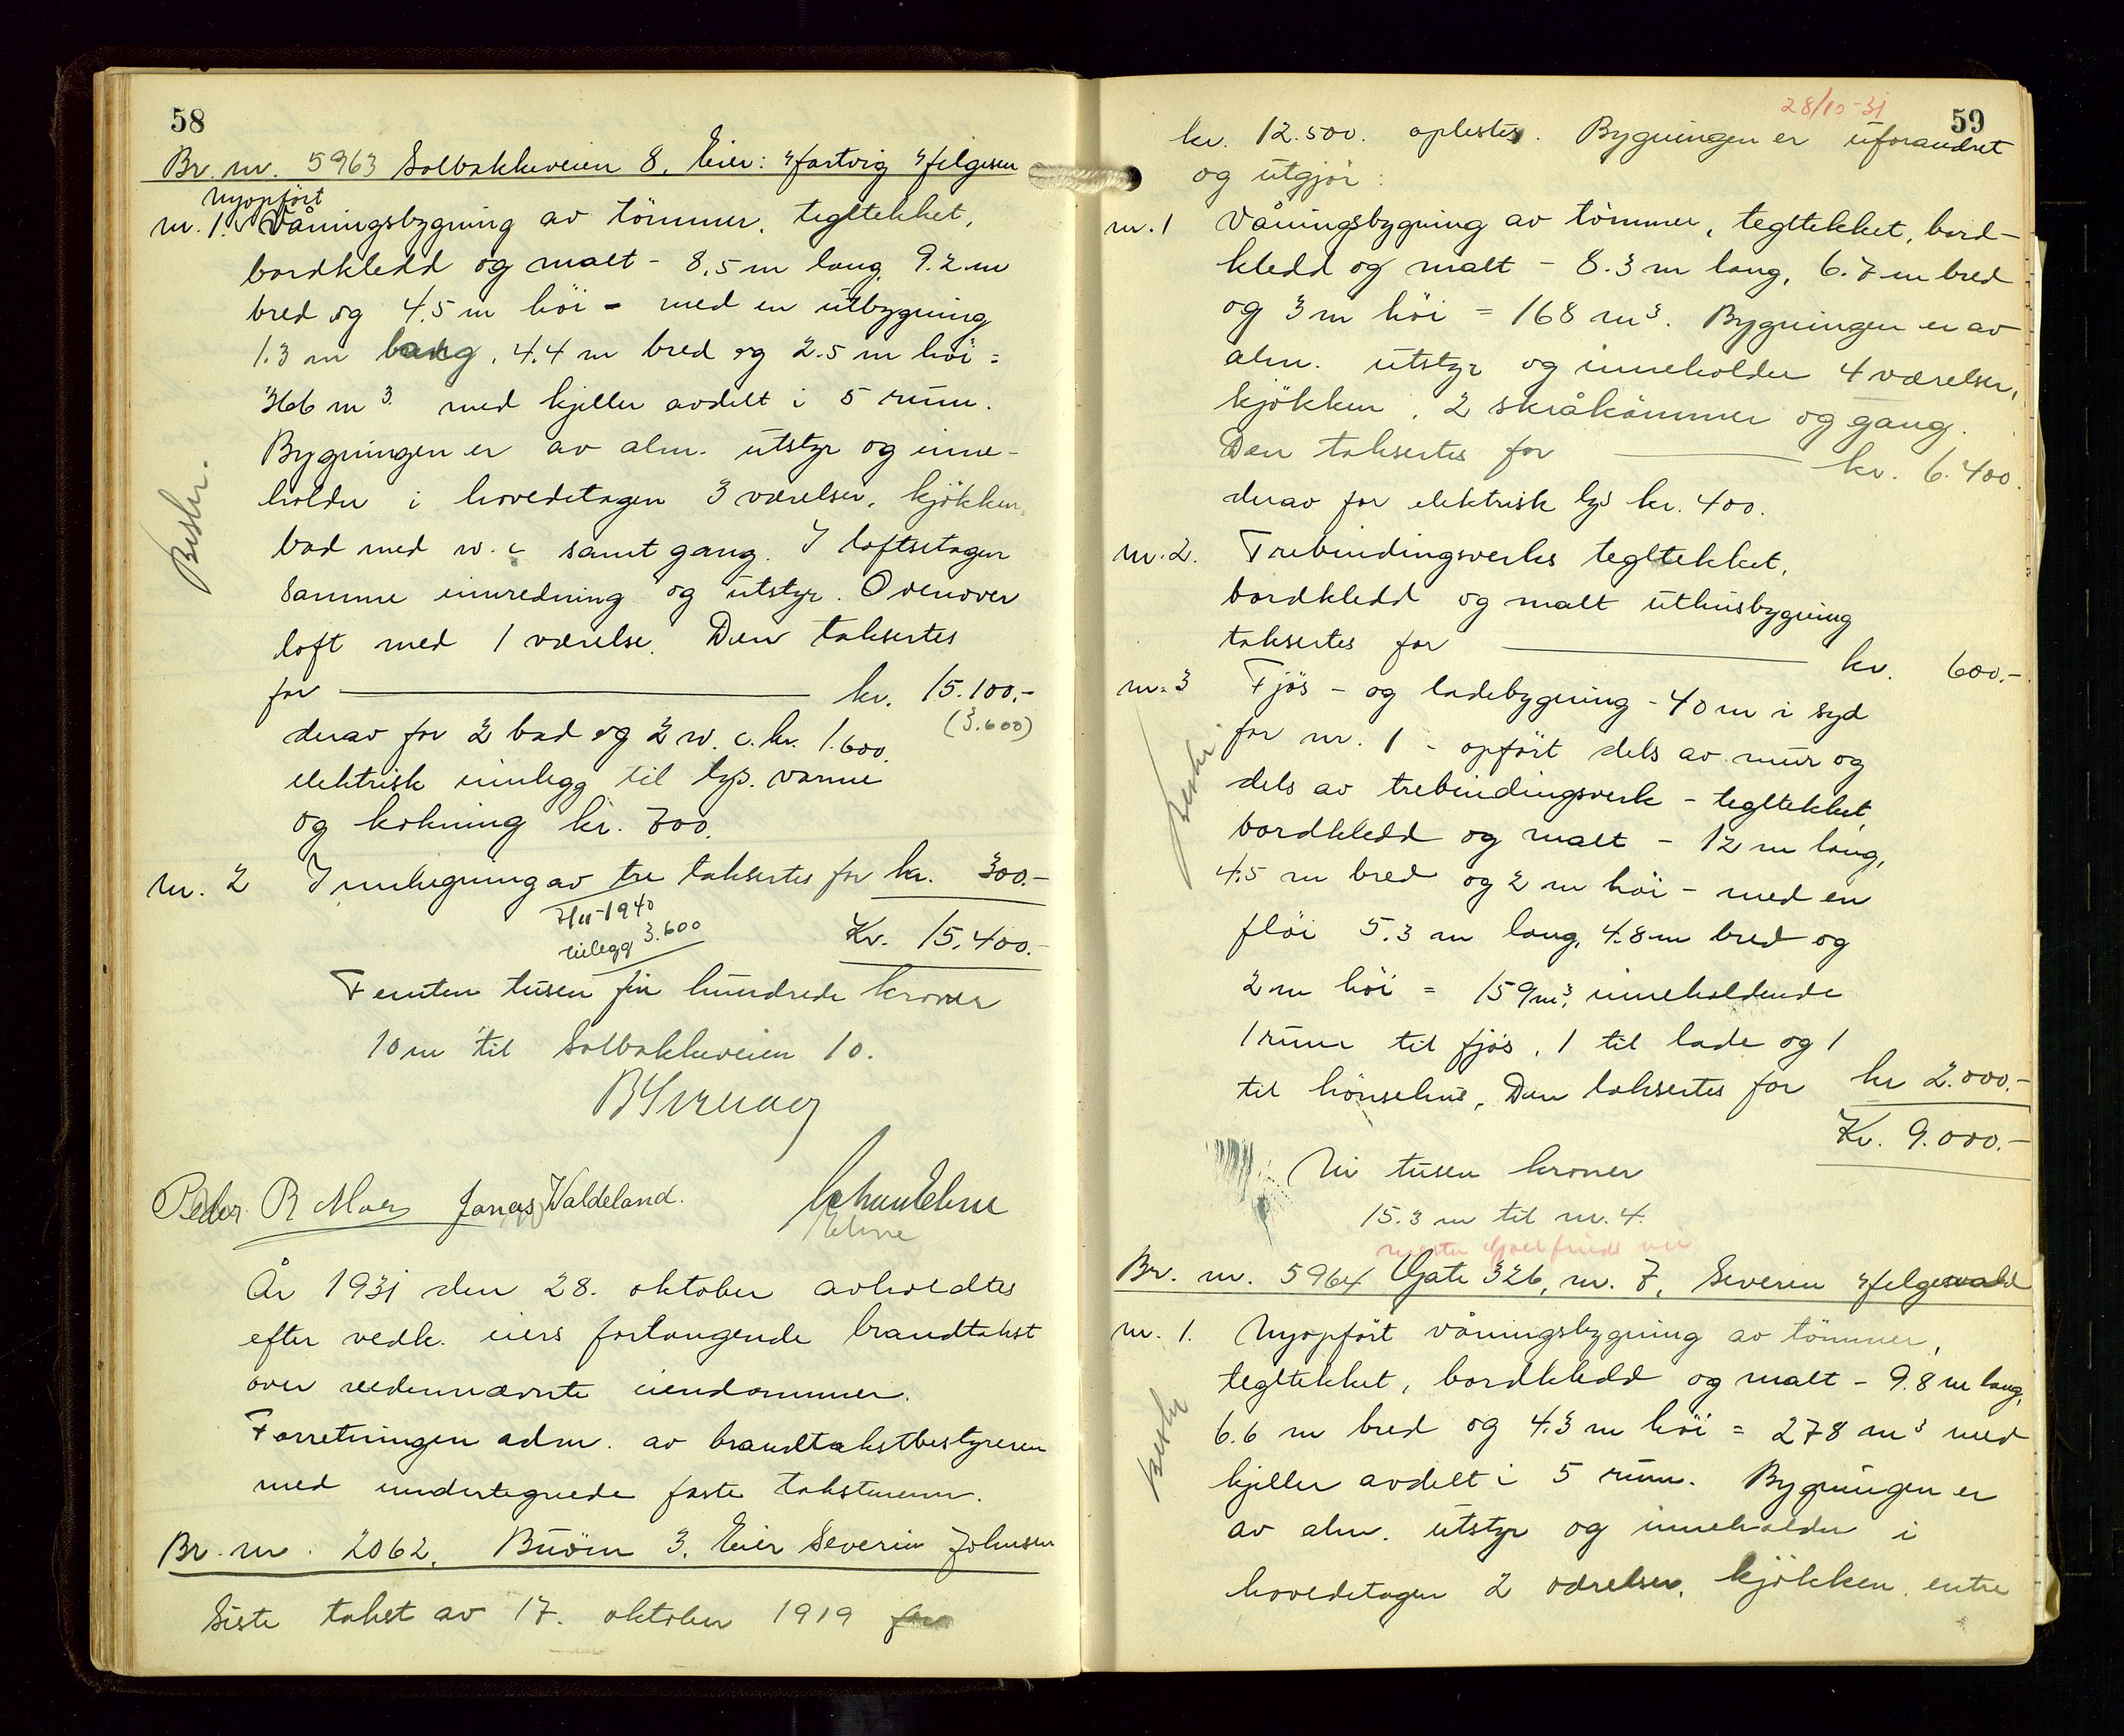 58
Br. nr. 5963 Solbakkeveien 8. Eier: Hartvig Helgesen
nyopført
nr. 1. Våningsbygning av tömmer, tegltekket,
bordkledd og malt - 8.5 m lang, 9.2 m
bred og 4.5 m höi - med en utbygning
1.3 m lang, 4.4 m bred og 2.5 m höi =
366 m³ med kjeller avdelt i 5 rum.
Bygningen er av alm. utstyr og inne-
holder i hovedetagen 3 værelser, kjökken,
bad med w.c samt gang. I loftsetagen
samme innredning og utstyr. Ovenover
loft med 1 værelse. Den taksertes
for kr. 15.100.-
(3.600)
derav for 2 bad og 2 w.c. kr. 1.600.
elektrisk innlegg til lys, varme
og kokning kr. 700.
nr. 2 Innhegning av tre taksertes for kr. 300.-
7/11-1940
tillegg 3.600
Kr. 15.400.-
Femten tusen fire hundrede kroner
10 m til Solbakkeveien 10.
Peder R Moe Jonas Waldeland.
Beskr.
År 1931 den 28. oktober avholdtes
efter vedk. eiers forlangende brandtakst
over nedennævnte eiendommer.
Forretningen adm. av brandtakstbestyreren
med undertegnede faste takstmenn.
Br. nr. 2062. Buöen 3. Eier Severin Johnsen
Siste takst av 17. oktober 1919 for
28/10-31
59
kr. 12.500. oplestes. Bygningen er uforandret
og utgjör:
nr. 1 Våningsbygning av tömmer, tegltekket, bord-
kledd og malt - 8.3 m lang, 6.7 m bred
og 3 m höi = 168 m³. Bygningen er av
alm. utstyr og inneholder 4 værelser,
kjökken, 2 skråkammer og gang.
Den taksertes for kr. 6.400.
derav for elektrisk lys kr. 400.
nr. 2. Trebindingsverks tegltekket,
bordkledd og malt uthusbygning
taksertes for kr. 600.-
nr. 3 Fjös - og ladebygning - 40 m i syd
for nr. 1 - opfört dels av mur og
dels av trebindingsverk - tegltekket,
bordkledd og malt - 12 m lang,
4.5 m bred og 2 m höi - med en
flöi 5.3 m lang, 4.8 m bred og
2 m höi = 159 m³, inneholdende
1 rum til fjös, 1 til lade og 1
til hönsehus. Den taksertes for kr 2.000.-
Kr. 9.000.-
Beskr
Ni tusen kroner
15.3 m til nr. 4.
Br. nr. 5964 Gate 326, nr. 7. Severin Helgevold
nr. 1. Nyopfört våningsbygning av tömmer,
tegltekket, bordkledd og malt - 9.8 m lang,
6.6 m bred og 4.3 m höi = 278 m³ med
kjeller avdelt i 5 rum. Bygningen er
av alm. utstyr og inneholder i
hovedetagen 2 værelser, kjökken, entre
Beskr